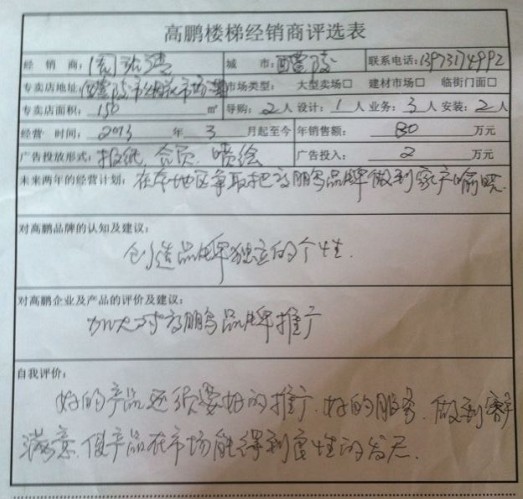 高鹏楼梯经销商评选表
经 销 商： 城 市：醴陵 联系电话：13973174992
专卖店地址：醴陵市 市场 市场类型： 大型卖场□ 建材市场□ 临街门面□
专卖店面积：150 ㎡ 导购：2人 设计：1人 业务：3人 安装：2人
经营 时间：2013 年 3 月起至今 年销售额： 80 万元
广告投放形式：报纸、含页、喷绘 广告投入： 2 万元
未来两年的经营计划：在本地区争取把高鹏品牌做到家户喻晓.
对高鹏品牌的认知及建议：
创造品牌独立的个性.
对高鹏企业及产品的评价及建议：
加大对高鹏品牌推广
自我评价：
好的产品还须要好的推广.好的服务.做到客户
满意.使产品在市场能得到良性的发展.